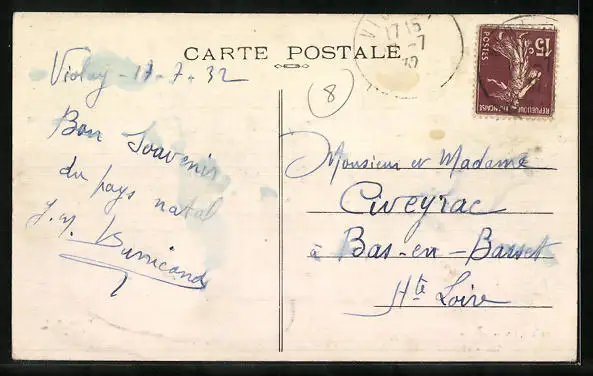 CARTE POSTALE
Violay - 17-7-32
Bon Souvenir
du pays natal
J. M.
8
17 15
-7
32
15c
POSTES
REPUBLIQUE FRANÇAISE
Monsieur et Madame
Civeyrac
à Bas-en-Basset
Hte Loire